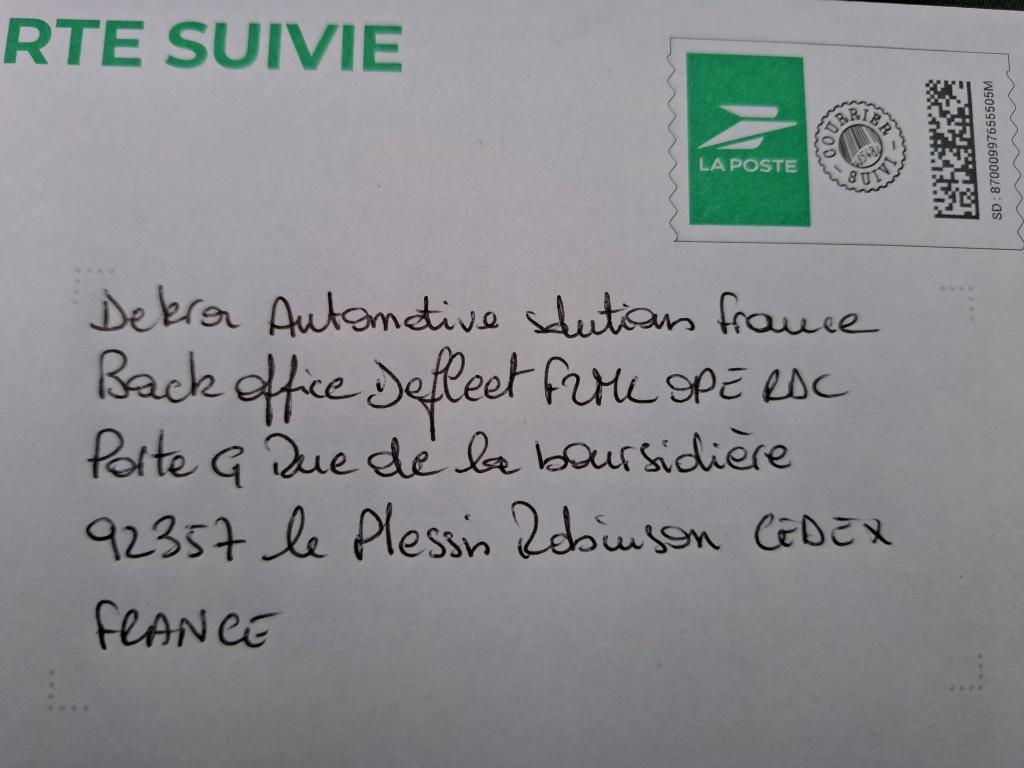 RTE SUIVIE
LA POSTE
COURRIER SUIVI
SD : 87000997655505M
Dekra Automotive solutions france
Back office Defleet F2ML OPE RDC
Porte G Rue de la boursidière
92357 le Plessis Robinson CEDEX
FRANCE